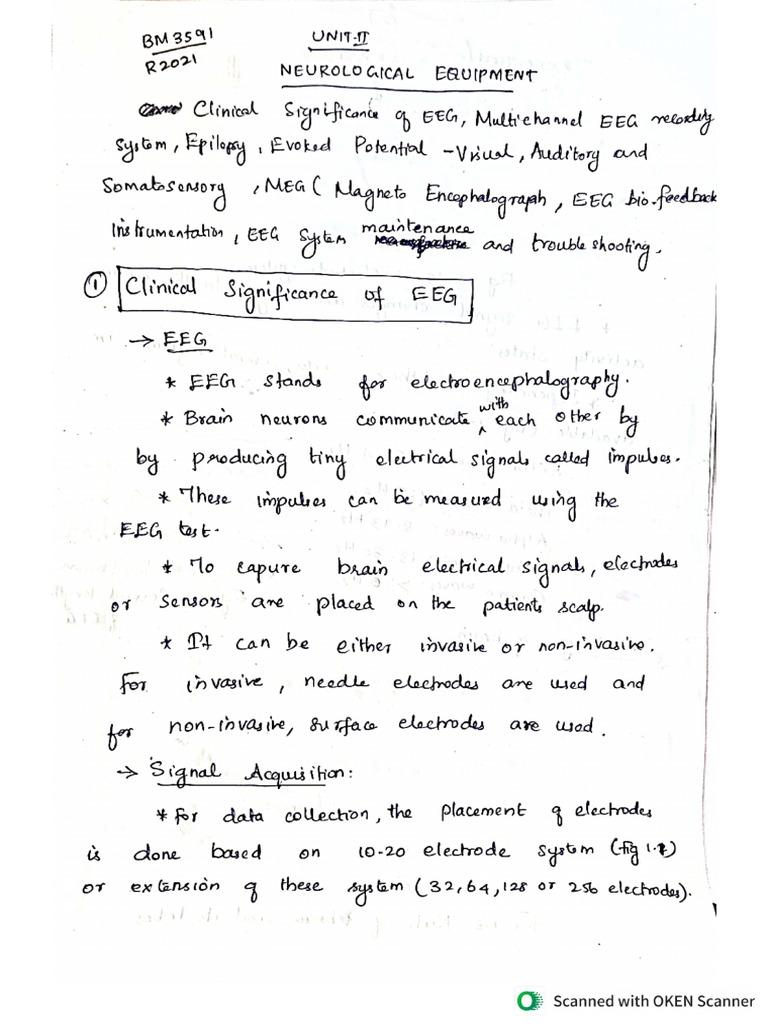 BM3591
UNIT-II
R2021
NEUROLOGICAL EQUIPMENT
Clinical Significance of EEG, Multichannel EEG recording
System, Epilepsy, Evoked Potential - Visual, Auditory and
Somatosensory, MEG ( Magneto Encephalograph, EEG bio-feedback
Instrumentation, EEG System maintenance and troubleshooting.
① Clinical Significance of EEG
→ EEG
* EEG stands for electroencephalography.
* Brain neurons communicate with each other by
by producing tiny electrical signals called impulses.
* These impulses can be measured using the
EEG test.
* To capure brain electrical signals, electrodes
or sensors are placed on the patients scalp.
* It can be either invasive or non-invasive.
For invasive, needle electrodes are used and
for non-invasive, surface electrodes are used.
→ Signal Acquisition:
* For data collection, the placement of electrodes
is done based on 10-20 electrode system (fig 1.1)
or extension of these system (32, 64, 128 or 256 electrodes).
Scanned with OKEN Scanner